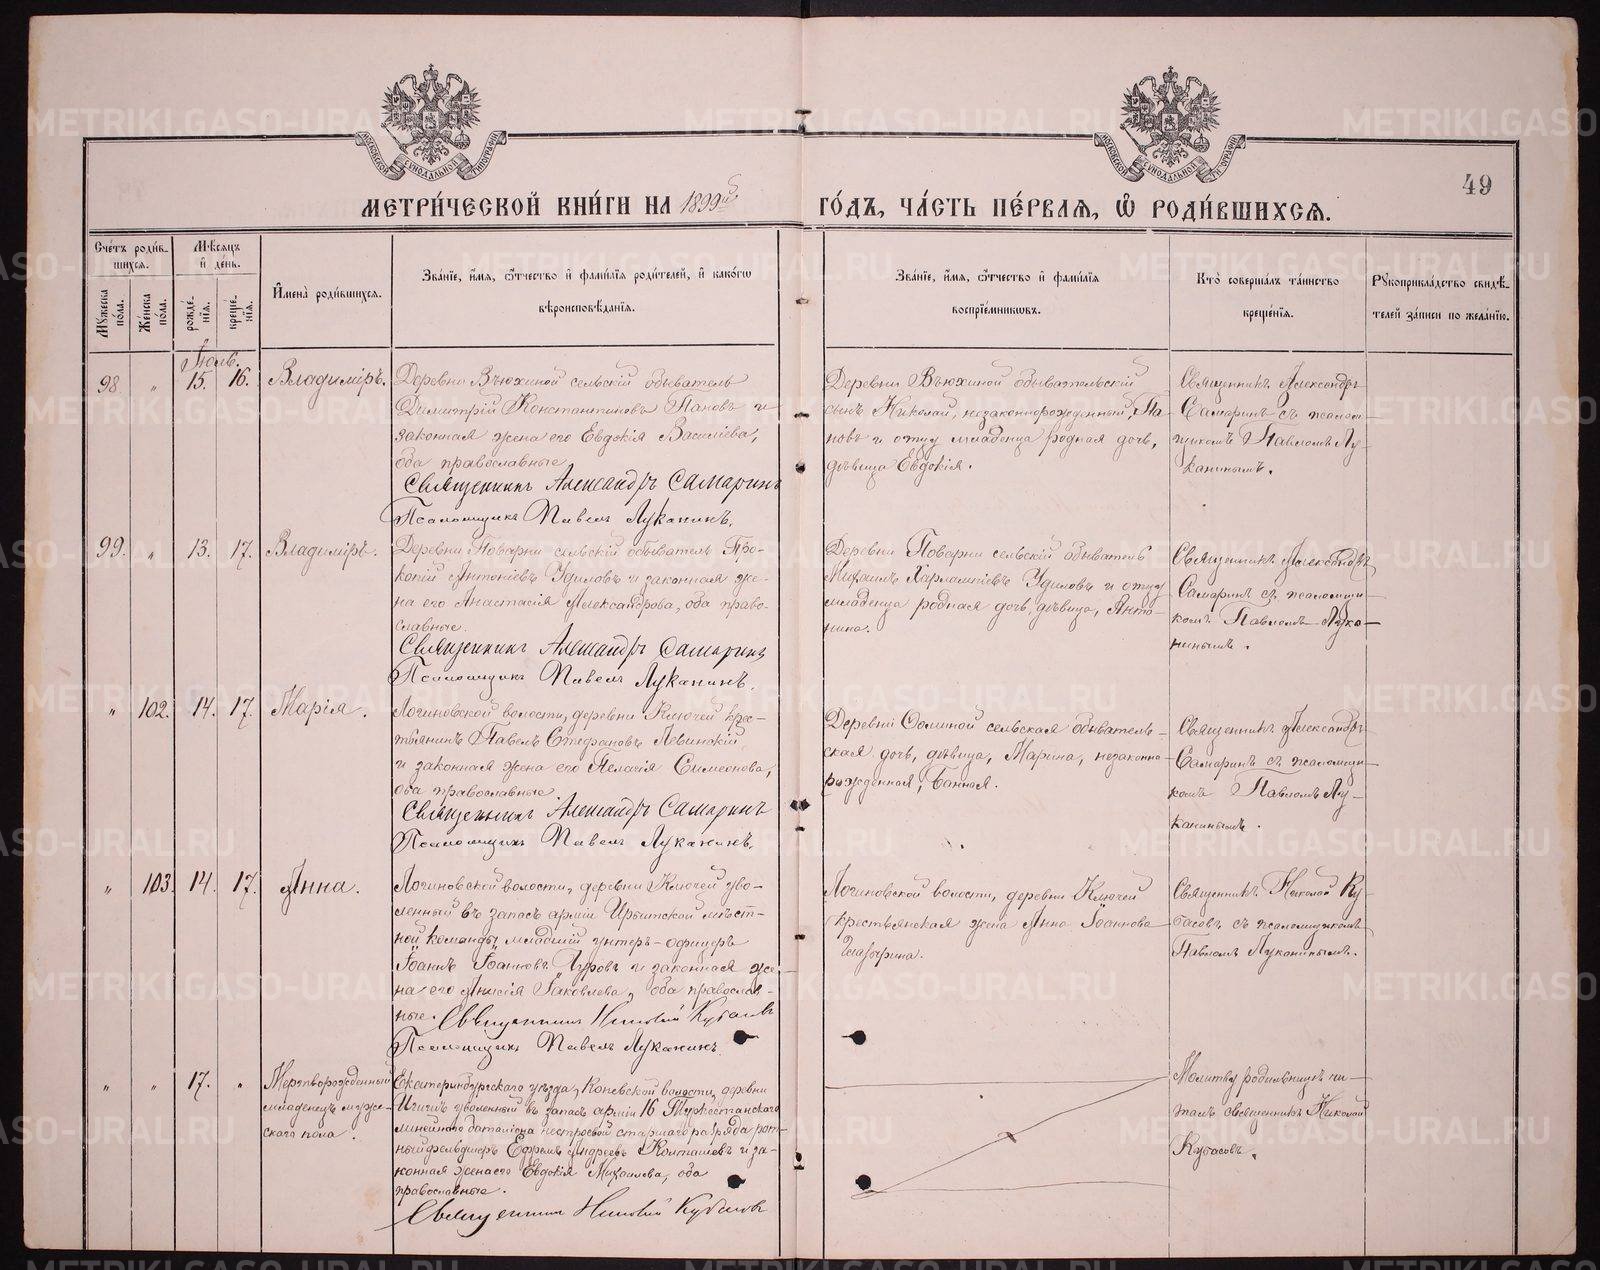 МЕТРИ́ЧЕСКОЙ КНИ́ГИ НА 1899й ГО́ДЪ, ЧА́СТЬ ПЕ́РВАЯ, Ѽ РОДИ́ВШИХСЯ.
49
МОСКОВСКОЙ СУНОДАЛЬНОЙ ТИПОГРАФІИ
МОСКОВСКОЙ СУНОДАЛЬНОЙ ТИПОГРАФІИ
Сче́тъ роди́в-
шихся.
Му́жеска по́ла.
Же́нска по́ла.
Мѣ́сяцъ
и҆ де́нь.
рожде́-
нїя.
креще́-
нїя.
И҆мена̀ роди́вшихся.
Зва́нїе, и҆́мя, ѻ҆́тчество и҆ фами́лїя роди́телей, и҆ како́гѡ
вѣроисповѣ́данїя.
Зва́нїе, и҆́мя, ѻ҆́тчество и҆ фами́лїя
воспрїе́мниковъ.
Кто̀ соверша́лъ та́инство
креще́нїя.
Рꙋкоприкла́дство свидѣ́-
телей за́писи по жела́нїю.
Іюль.
98 " 15. 16. Владиміръ.
Деревни Вьюхиной сельскій обыватель
Димитрій Константиновъ Пановъ и
законная жена его Евдокія Василіева,
оба православные
Священникъ Александръ Самаринъ
Псаломщикъ Павелъ Луканинъ.
Деревни Вьюхиной обывательскій
сынъ Николай, незаконнорожденный, Па-
новъ и отцу младенца родная дочь,
дѣвица Евдокія.
Священникъ Александръ
Самаринъ съ псалом-
щикомъ Павломъ Лу-
канинымъ.
99. " 13. 17. Владиміръ.
Деревни Поварни сельскій обыватель Про-
копій Антоніевъ Удиловъ и законная же-
на его Анастасія Александрова, оба право-
славные.
Священникъ Александръ Самаринъ
Псаломщикъ Павелъ Луканинъ.
Деревни Поварни сельскій обыватель
Михаилъ Харлампіевъ Удиловъ и отцу
младенца родная дочь, дѣвица, Анто-
нина.
Священникъ Александръ
Самаринъ съ псаломщи-
комъ Павломъ Лука-
нинымъ.
" 102. 14. 17. Марія.
Логиновской волости, деревни Ключей крес-
тьянинъ Павелъ Стефановъ Левинскій
и законная жена его Пелагія Симеонова,
оба православные
Священникъ Александръ Самаринъ
Псаломщикъ Павелъ Луканинъ.
Деревни Соминой сельская обыватель-
ская дочь, дѣвица, Марина, незаконно-
рожденная, Банная.
Священникъ Александръ
Самаринъ съ псаломщи-
комъ Павломъ Лу-
канинымъ.
" 103. 14. 17. Анна.
Логиновской волости, деревни Ключей уво-
ленный въ запасъ арміи Ирбитской мѣст-
ной команды младшій унтеръ-офицеръ
Іоаннъ Іоанновъ и законная же-
на его Анисія Іаковлева, оба православ-
ные. Священникъ Николай Кубасовъ
Псаломщикъ Павелъ Луканинъ.
Логиновской волости, деревни Ключей
крестьянская жена Анна Іоаннова
Священникъ Николай Ку-
басовъ съ псаломщикомъ
Павломъ Луканинымъ.
" " 17. " Мертворожденный
младенецъ муже-
скаго пола.
Екатеринбургскаго уѣзда, Коневской волости, деревни
уволенный въ запасъ арміи 16 Туркестанскаго
линейнаго баталіона нестроевой старшаго разряда рот-
ный фельдшеръ Ефремъ Андреевъ Колташевъ и за-
конная жена его Евдокія Михаилова, оба
православные.
Священникъ Николай Кубасовъ
Молитву родильницѣ чи-
талъ священникъ Николай
Кубасовъ.
METRIKI.GASO-URAL.RU